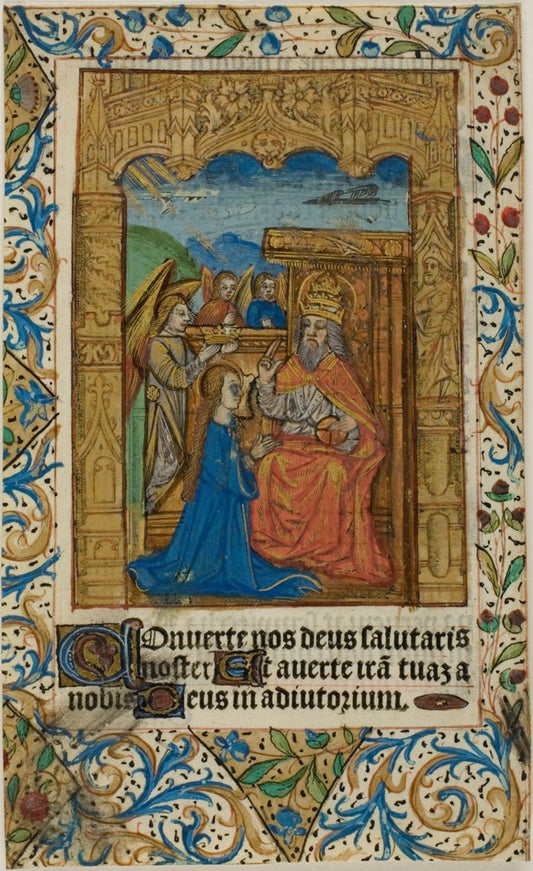 Conuerte nos deus salutaris
noster Et auerte irã tuaʒ a
nobis Deus in adiutorium.